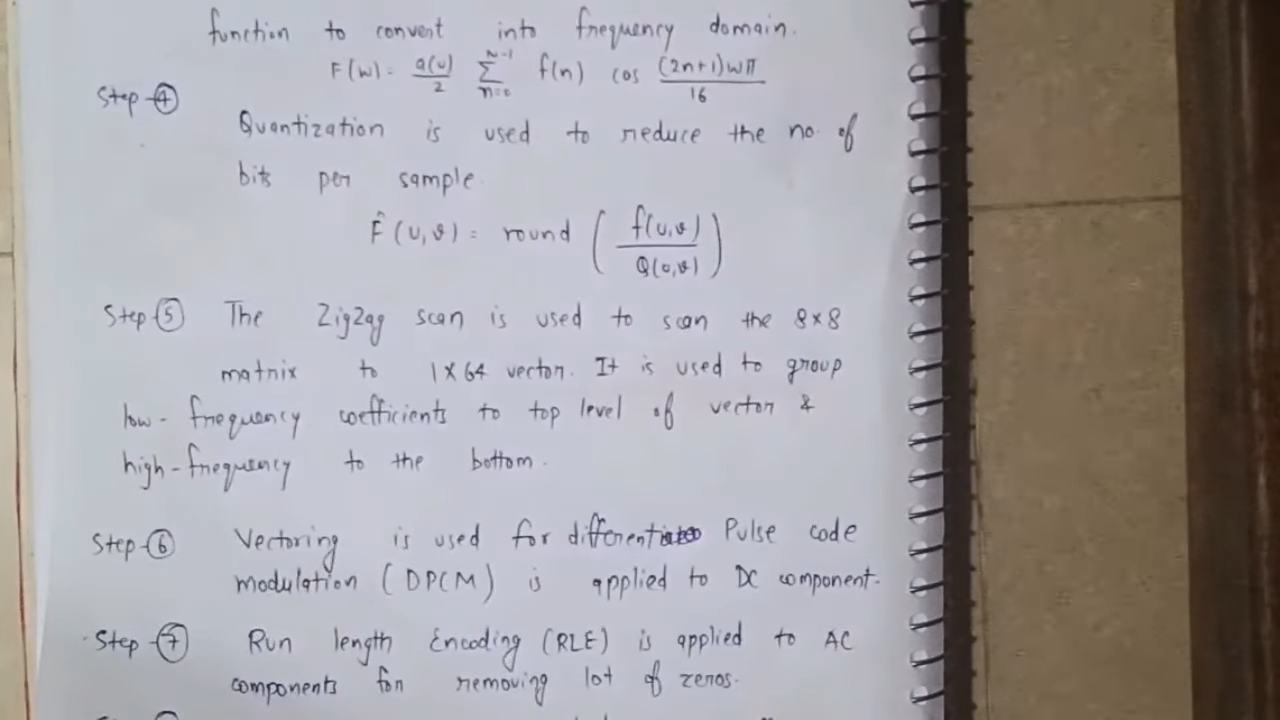 function to convert into frequency domain.
F(w) = a(u)/2 N-1 Σ n=0 f(n) cos (2n+1)wπ/16
Step-④
Quantization is used to reduce the no. of
bits per sample.
F̂(u,v) = round ( f(u,v) / Q(u,v) )
Step-⑤ The ZigZag scan is used to scan the 8×8
matrix to 1×64 vector. It is used to group
low-frequency coefficients to top level of vector &
high-frequency to the bottom.
Step-⑥ Vectoring is used for different Pulse code
modulation (DPCM) is applied to DC component.
Step-⑦ Run length Encoding (RLE) is applied to AC
components for removing lot of zeros.